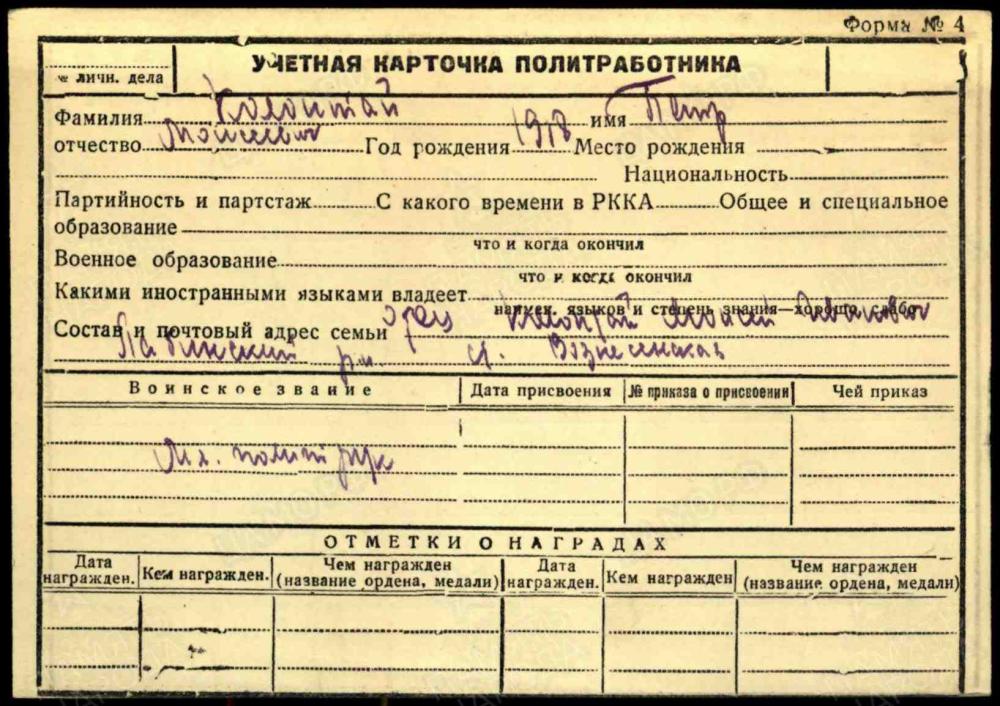 Форма № 4
№ личн. дела
УЧЕТНАЯ КАРТОЧКА ПОЛИТРАБОТНИКА
Фамилия Колонтай имя Петр
отчество Моисеевич Год рождения 1918 Место рождения
Национальность
Партийность и партстаж С какого времени в РККА Общее и специальное
образование
что и когда окончил
Военное образование
что и когда окончил
Какими иностранными языками владеет
наимен. языков и степень знания—хорошо, слабо
Состав и почтовый адрес семьи Отец Колонтай Моисей Иванович
Лабинский р-н. ст. Вознесенская
Воинское звание Дата присвоения № приказа о присвоении Чей приказ
Мл. политрук
ОТМЕТКИ О НАГРАДАХ
Дата награжден. Кем награжден. Чем награжден (название ордена, медали) Дата награжден. Кем награжден Чем награжден (название ордена, медали)